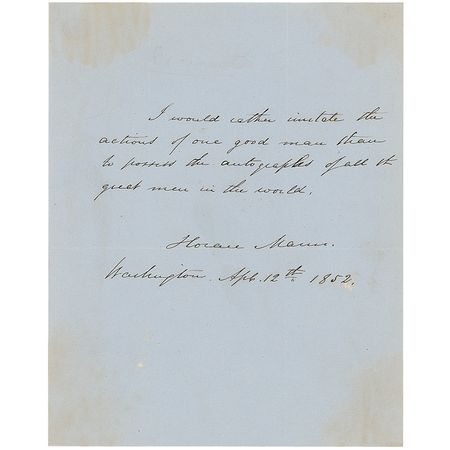 I would rather imitate the
actions of one good man than
to possess the autographs of all the
great men in the world.
Horace Mann.
Washington. Apl. 12th. 1852.